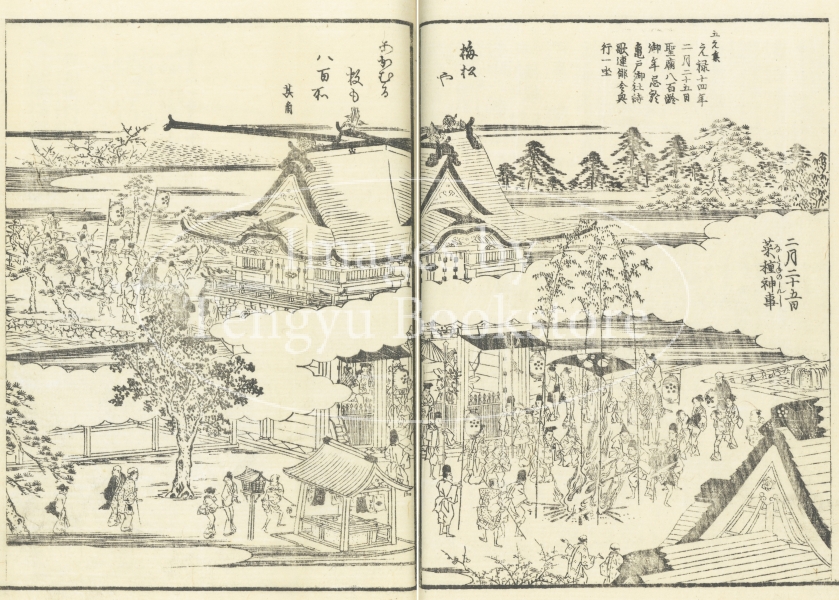 五元集
元禄十四年
二月二十五日
聖廟八百齢
御年忌於
亀戸御社詩
歌連俳令興
行一坐
梅松や
あがむる
数も
八百所
其角
二月二十五日
菜種神事
Images by
Tengyu Bookstore